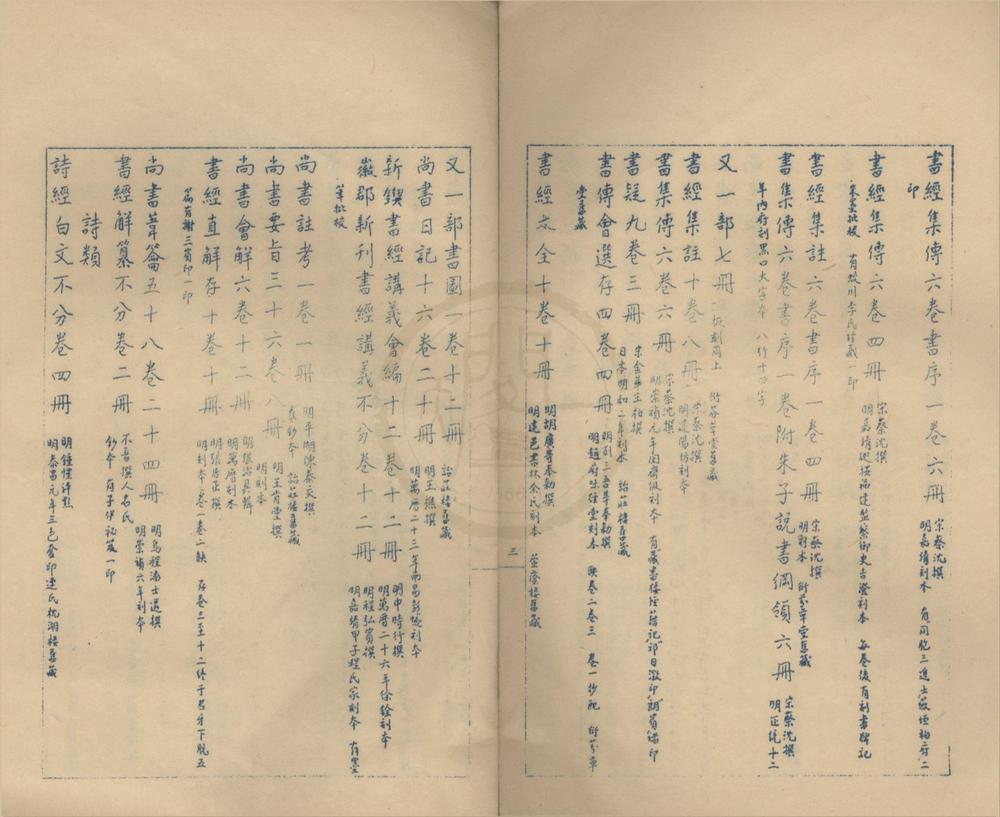 書經集傳六卷書序一卷六冊 宋蔡沈撰 明嘉靖刻本 有同胞三進士
印
書經集傳六卷四冊 宋蔡沈撰 明嘉靖 福建監察御史吉澄刻本 每卷後有刻書牌記
朱墨批校 有 川李氏珍藏一印
書經集註六卷書序一卷四冊 宋蔡沈撰 明刻本 衍芬草堂舊藏
書集傳六卷書序一卷附朱子說書綱領六冊 宋蔡沈撰 明正統十二
年內府刻黑口大字本 八行十四字
又一部七冊 板刻同上 衍芬草堂舊藏
書經集註十卷八冊 宋蔡沈撰 明建陽坊刻本
書集傳六卷六冊 宋蔡沈撰 明崇禎元年閔齊伋刻本
書疑九卷三冊 宋金華王柏撰 日本明和二年刻本 詒莊樓舊藏
書傳會選存四卷四冊 明劉三吾等奉勅撰 明趙府味經堂刻本 缺卷二卷三 卷一抄配 衍芬草
堂舊藏
書經大全十卷十冊 明胡廣等奉勅撰 明建邑書林余氏刻本 萱蔭樓舊藏
三
又一部書圖一卷十二冊 詒莊樓舊藏
尚書日記十六卷二十冊 明王樵撰 明萬曆二十三年 刻本
新鍥書經講義會編十二卷十二冊 明申時行撰 明萬曆二十六年徐銓刻本
徽郡新刊書經講義不分卷十二冊 明程弘賓撰 明嘉靖甲子程氏家刻本 有墨
筆批校
尚書註考一卷一冊 明平湖陳泰交撰 舊鈔本 詒莊樓舊藏
尚書要旨三十六卷八冊 明王肯堂撰 明刻本
尚書會解六卷十二冊 明張治具輯 明萬曆刻本
書經直解存十卷十冊 明張居正撰 明刻本 卷一卷二缺 存卷三至十二終于君牙下脫五
篇 有謝三賓印一印
尚書葦籥五十八卷二十四冊 明烏程潘士遴撰 明崇禎六年刻本
書經解纂不分卷二冊 不著撰人名氏 鈔本 有子伊祕笈一印
詩類
詩經白文不分卷四冊 明鍾惺評點 明泰昌元年三色套印連氏枕湖樓舊藏